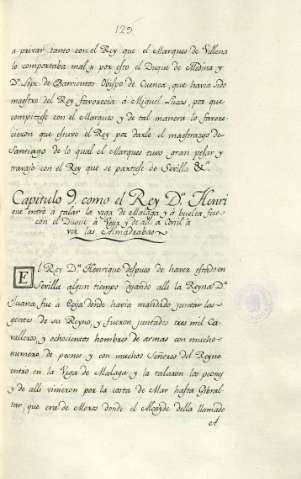 129
a privar, tanto con el Rey que el Marques de Villena
lo comportaba mal, y por esso el Duque de Medina y
Dn. Lope de Barrientos Obispo de Cuenca, que havia sido
maestro del Rey favorecia a Miguel Lucas, por que
compitiesse con el Marques y de tal manera lo favore-
cieron que estuvo el Rey por darle el maestrazgo de
Santiago de lo qual el Marques tuvo gran pesar y
travajo con el Rey que se partiesse de Sevilla &a.
Capitulo 9. como el Rey Dn. Henri
que entrò a talar la vega de Malaga y a buelta fue
con el Duque à y de alli a Conil a
ver las Almadrabas
El Rey Dn. Henrique despues de haver estado en
Sevilla algun tiempo quando alli la Reyna Da.
Juana, fue à Ecija donde havia mandado juntar las
gentes de su Reyno, y fueron juntados tres mil Ca-
valleros y ochocientos hombres de armas con mucho
numero de peones y con muchos Señores del Reyno
entro en la Vega de Malaga, y la talaron los peones
y de alli vinieron por la costa de Mar hasta Gibral-
tar, que era de Moros donde el Alcayde della llamado